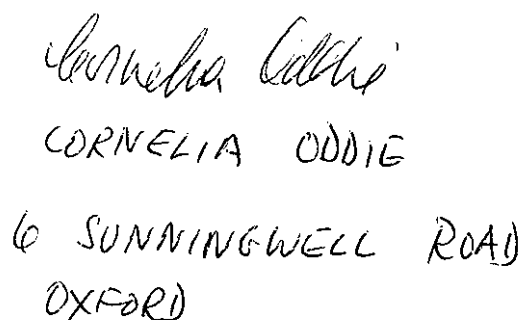 Cornelia Oddie
CORNELIA ODDIE
6 SUNNINGWELL ROAD
OXFORD